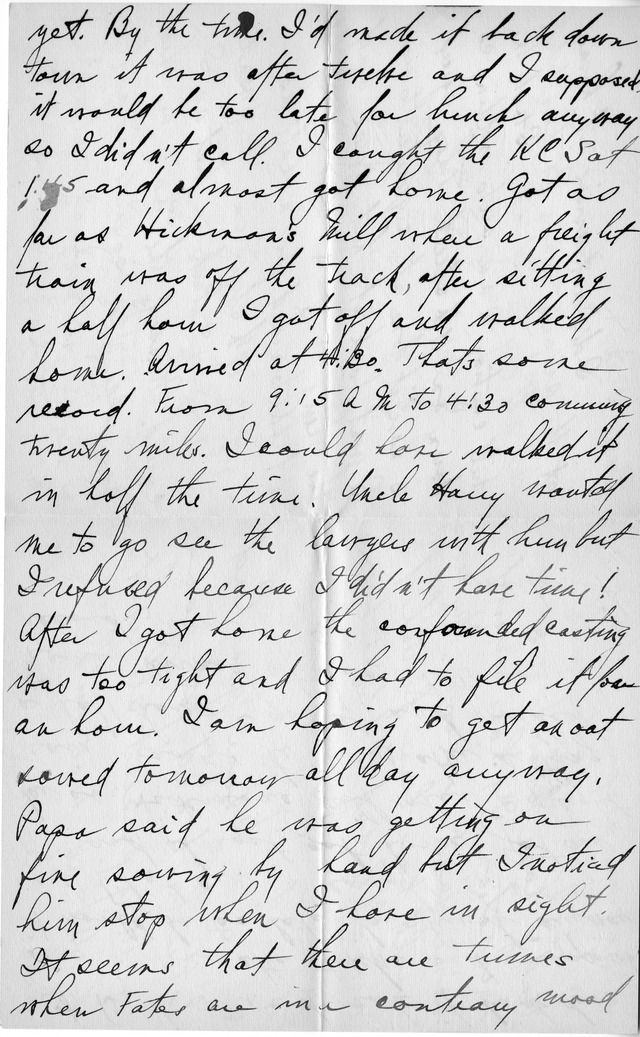 yet. By the time. I'd made it back down
town it was after twelve and I supposed
it would be too late for lunch anyway
so I didn't call. I caught the KCS at
1:45 and almost got home. Got as
far as Hickman's Mill where a freight
train was off the track, after sitting
a half hour I got off and walked
home. Arrived at 4:30. Thats some
record. From 9:15 A M to 4:30 coming
twenty miles. I could have walked it
in half the time. Uncle Harry wanted
me to go see the lawyers with him but
I refused because I didn't have time!
After I got home the confounded casting
was too tight and I had to file it for
an hour. I am hoping to get an oat
sowed tomorrow all day anyway.
Papa said he was getting on
fine sowing by hand but I noticed
him stop when I hove in sight.
It seems that there are times
when Fates are in a contrary mood